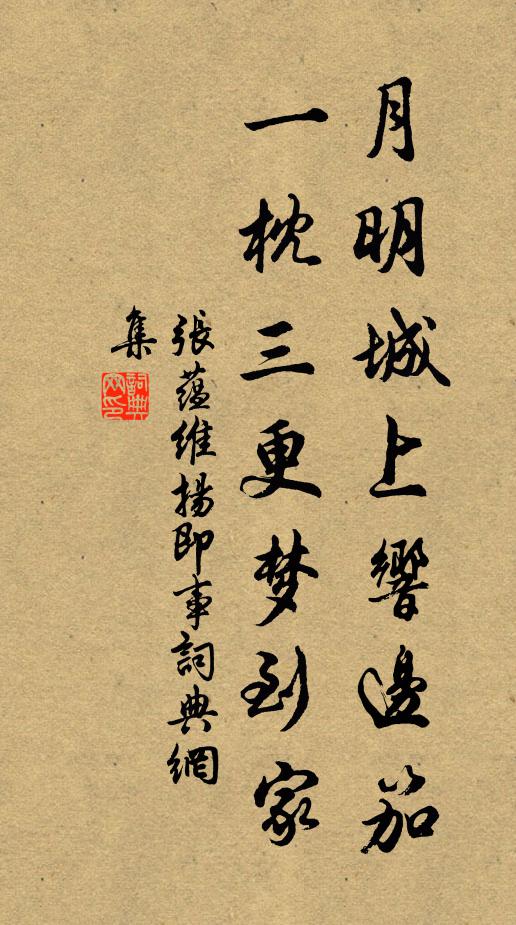 月明城上響邊笳
一枕三更梦到家
張蘊維揚即事詞典網
集
詞典
网印